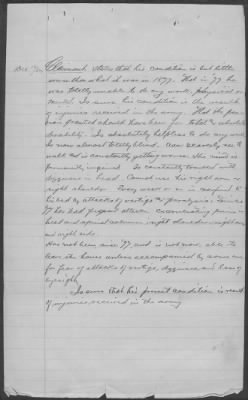 Claimant states that his condition is but little
worse than what it was in 1877. That in 77 he
was totally unable to do any work, physical or
mental. Is sure his condition is the result
of injuries received in the army. That the pen-
sion granted should have been for total & absolute
disability. Is absolutely helpless to do any work
Is now almost totally blind. Can scarcely see to
walk and is constantly getting worse. His mind is
permanently impaired. Is constantly troubled with
dizziness in head. Cannot use his right arm or
right shoulder. Every week or so is confined to
his bed by attacks of vertigo & paralysis. Since
77 he has frequent attacks excruciating pains in
head and spinal column right shoulder right arm
and right side.
Has not been since 77 and is not now able to
leave the house unless accompanied by some one
for fear of attacks of vertigo, dizziness and loss of
eyesight.
Is sure that his present condition is result
of injuries received in the army